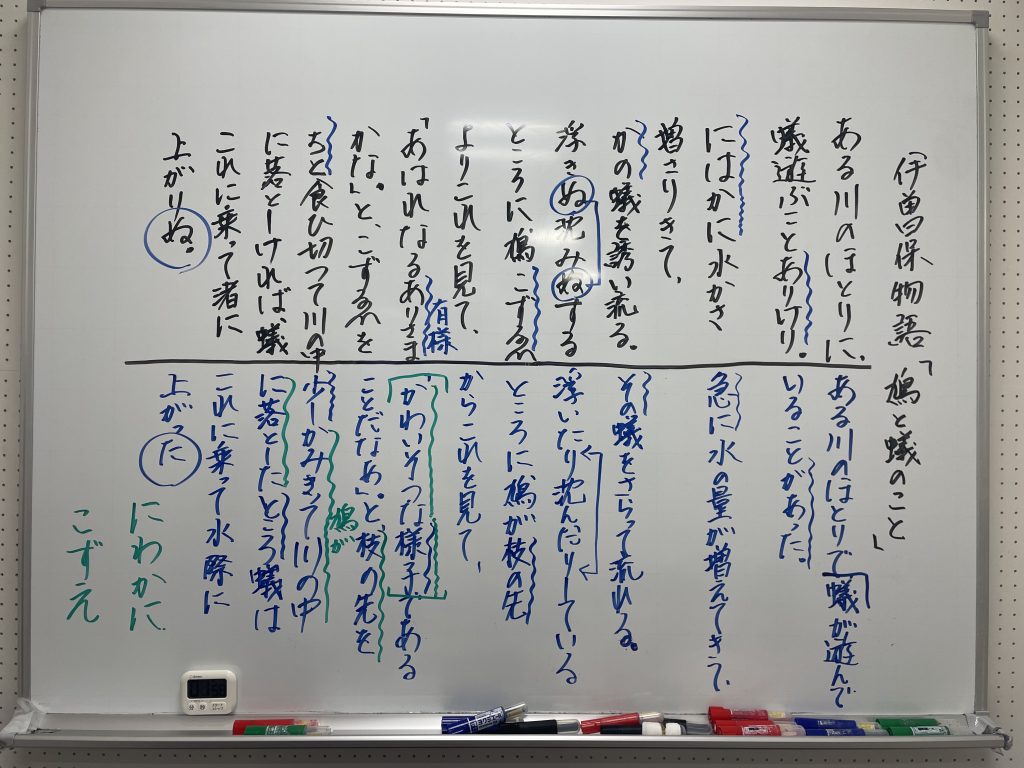 伊曽保物語「鳩と蟻のこと」
ある川のほとりに、
蟻遊ぶことありけり。
にはかに水かさ
増さりきて、
かの蟻を誘い流る。
浮きぬ沈みぬする
ところに、鳩こずゑ
よりこれを見て、
「あはれなるありさま
有様
かな。」と、こずゑを
ちと食ひ切つて川の中
に落としければ、蟻
これに乗って渚に
上がりぬ。
ある川のほとりで蟻が遊んで
いることがあった。
急に水の量が増えてきて、
その蟻をさらって流れる。
浮いたり沈んだりしている
ところに、鳩が枝の先
からこれを見て、
「かわいそうな様子である
ことだなあ」。と、枝の先を
鳩が
少しかみきって川の中
に落としたところ蟻は
これに乗って水際に
上がった
にわかに
こずえ
分 秒